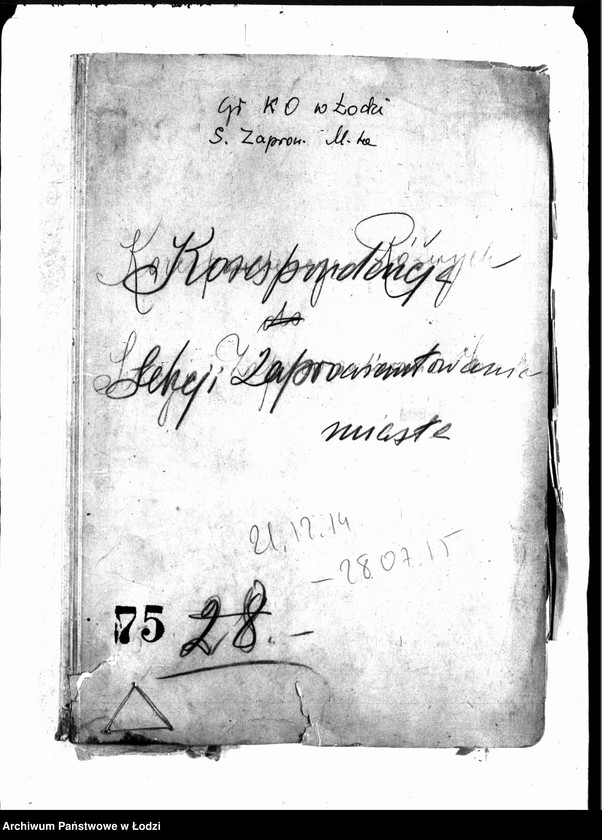 Gł K O w Łodzi
S. Zaprow. M-ta
Korespondencja
do
Sekcji Zaprowiantowania
miasta
21.12.14
– 28.07.15
75 28.–
Archiwum Państwowe w Łodzi